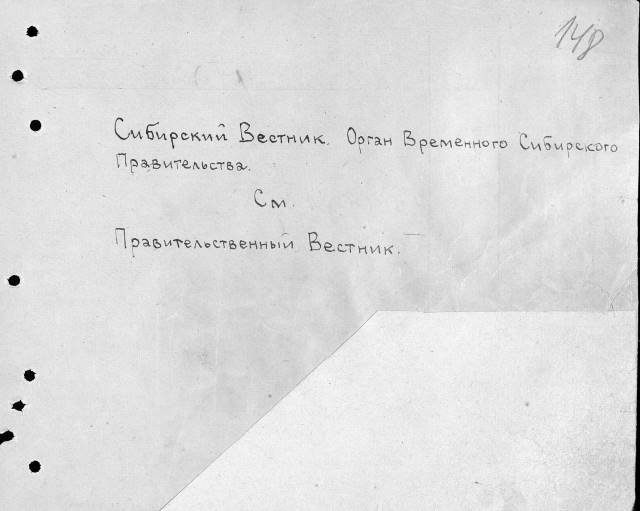 148
Сибирский Вестник. Орган Временного Сибирского
Правительства.
См.
Правительственный Вестник.